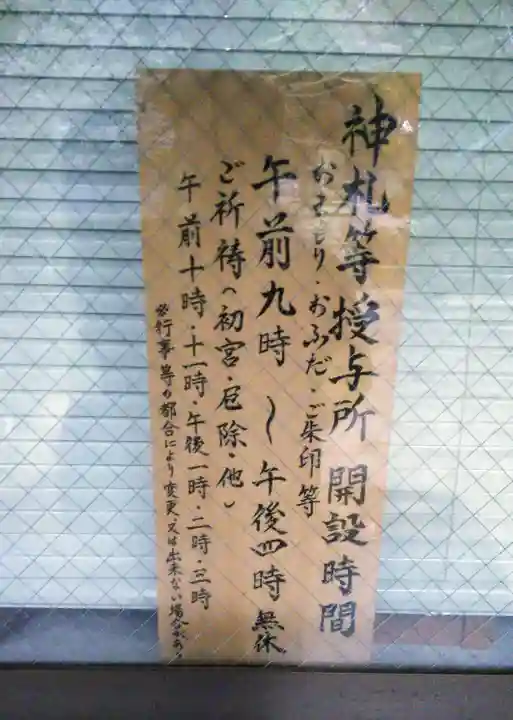 神札等授与所 開設時間
おまもり・おふだ・ご朱印等
午前九時 〜 午後四時 無休
ご祈祷(初宮・厄除・他)
午前十時・十一時・午後一時・二時・三時
※行事等の都合により変更・又は出来ない場合があり